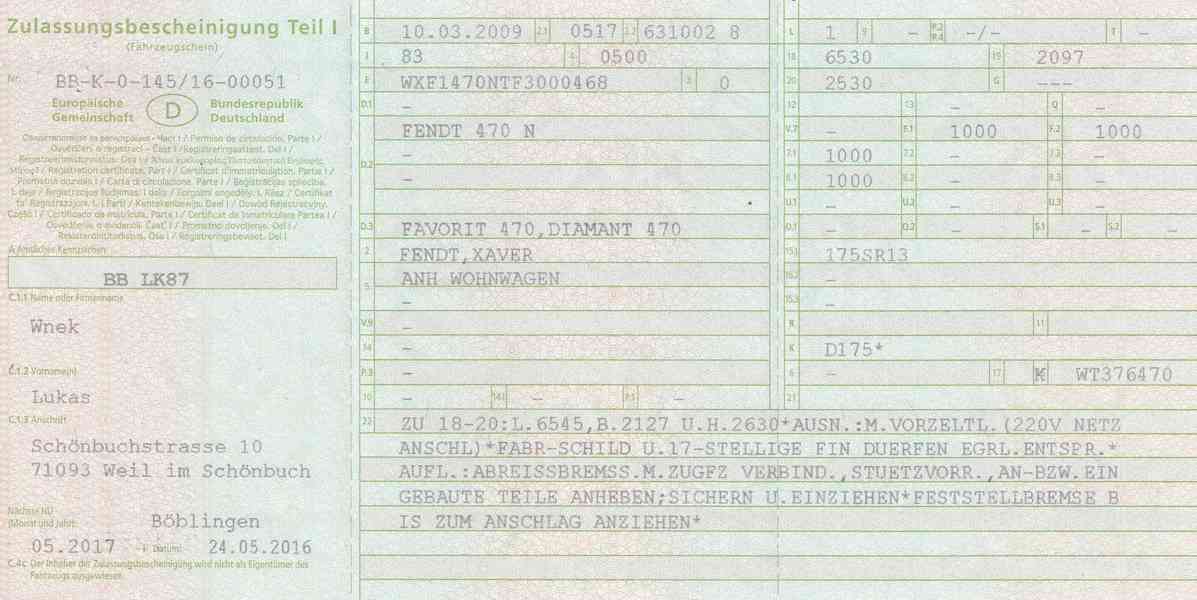 Zulassungsbescheinigung Teil I
(Fahrzeugschein)
Nr. BB-K-0-145/16-00051
Europäische Gemeinschaft D Bundesrepublik Deutschland
A Amtliches Kennzeichen
BB LK87
C.1.1 Name oder Firmenname
Wnek
C.1.2 Vorname(n)
Lukas
C.1.3 Anschrift
Schönbuchstrasse 10
71093 Weil im Schönbuch
Nächste HU
(Monat und Jahr) Böblingen
05.2017 Datum: 24.05.2016
C.4c Der Inhaber der Zulassungsbescheinigung wird nicht als Eigentümer des
Fahrzeugs ausgewiesen.
B 10.03.2009 2.1 0517 2.2 631002 8
J 83 4 0500
E WXF1470NTF3000468 3 0
D.1 –
FENDT 470 N
D.2 –
–
D.3 FAVORIT 470,DIAMANT 470
2 FENDT,XAVER
5 ANH WOHNWAGEN
–
V.9 –
14 –
P.3 –
10 – 14.1 – P.1 –
L 1 9 – P.2 P.4 –/– T –
18 6530 19 2097
20 2530 G ---
12 – 13 – Q –
V.7 – F.1 1000 F.2 1000
7.1 1000 7.2 – 7.3 –
8.1 1000 8.2 – 8.3 –
U.1 – U.2 – U.3 –
O.1 – O.2 – S.1 – S.2 –
15.1 175SR13
15.2 –
15.3 –
R – 11
K D175*
6 – 17 K WT376470
21
22 ZU 18-20:L.6545,B.2127 U.H.2630*AUSN.:M.VORZELTL.(220V NETZ
ANSCHL)*FABR-SCHILD U.17-STELLIGE FIN DUERFEN EGRL.ENTSPR.*
AUFL.:ABREISSBREMSS.M.ZUGFZ VERBIND.,STUETZVORR.,AN-BZW.EIN
GEBAUTE TEILE ANHEBEN;SICHERN U.EINZIEHEN*FESTSTELLBREMSE B
IS ZUM ANSCHLAG ANZIEHEN*